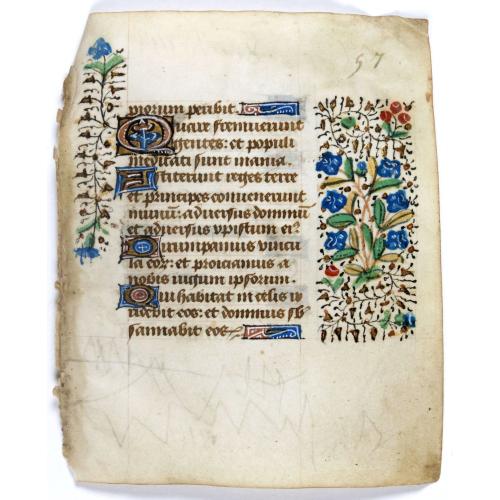 57
piorum peribit.
Quare fremuerunt
gentes: et populi
meditati sunt inania.
Astiterunt reges terre
et principes convenerunt
in unum: adversus dominum
et adversus christum ei⁹
Dirumpamus vincu
la eoꝝ: et proiciamus a
nobis iugum ipsorum.
Qui habitat in celis ir
ridebit eos: et dominus sb
sannabit eos.